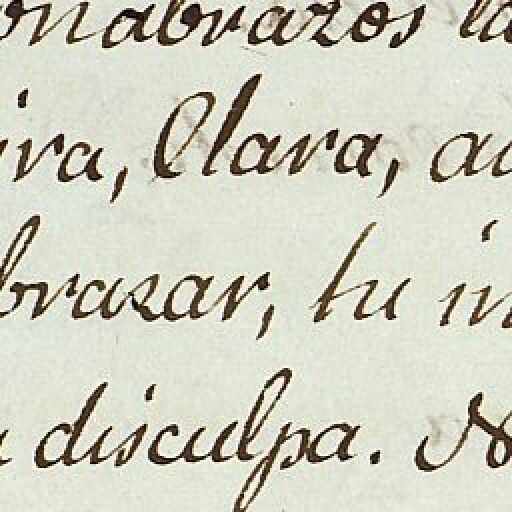 onabrazos la
ira, Clara, ac
brazar, tu in
disculpa. No